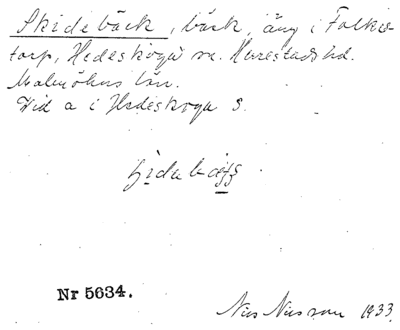 Skidebäck, bäck, äng i Folkes-
torp, Hedeskoga sn. Herrestads hd.
Malmöhus län.
Vid a i Hedeskoga S.
Nr 5634.
Nils Nilsson 1933.